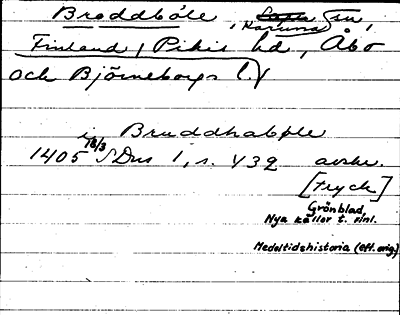 Broddböle, Karuna sn,
Finland, Pikis hd, Åbo
och Björneborgs l.
i Bruddhabøle
1405 18/3 SDns 1, s. 432 avskr.
[tryck]
Grönblad,
Nya källor t. finl.
Medeltidshistoria (eft. orig.)